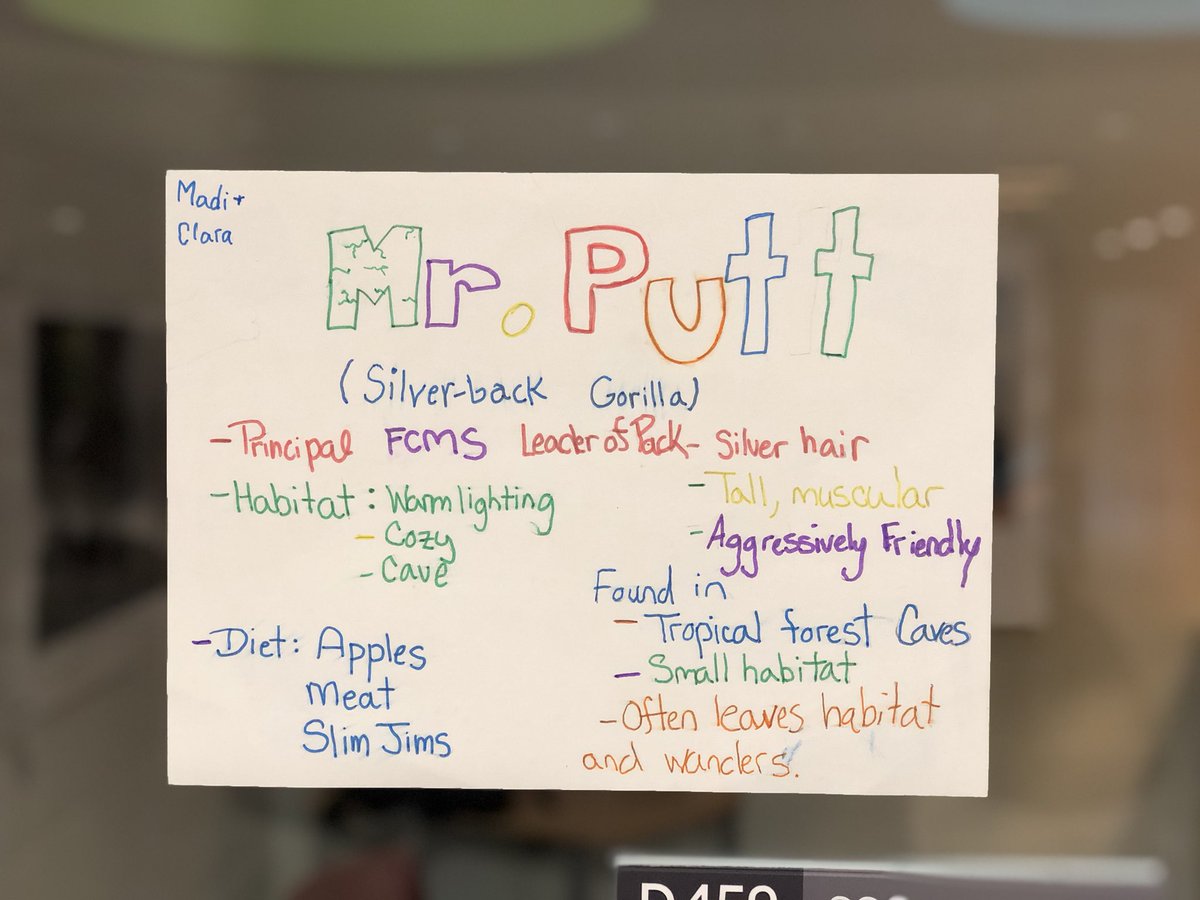 Madi +
Clara
Mr. Putt
(Silver-back Gorilla)
-Principal FCMS Leader of Pack- Silver hair
-Habitat: Warm lighting
- Cozy
- Cave
- Tall, muscular
- Aggressively Friendly
-Diet: Apples
meat
Slim Jims
Found in
- Tropical forest Caves
- Small habitat
-Often leaves habitat
and wanders.